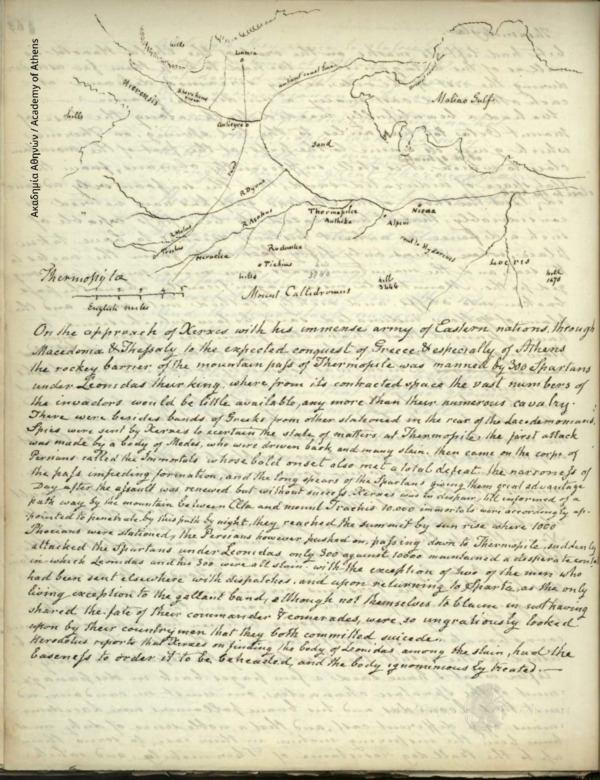 Ακαδημία Αθηνών / Academy of Athens
hills
Lamia
ancient coast line
Maliac Gulf
hills
Anticyra
Sand
road
R. Dyras
R. Melas
R. Asobus
Trachis
Heraclea
Thermopilæ
Anthela
Alpeni
Nicæa
road to Hyampolis
Locris
Rodunlia
Tichius
hills
3744
hill
3466
hill
1078
Mount Callidromus
Thermopylæ
English miles
On the approach of Xerxes with his immense army of Eastern nations, through
Macedonia & Thessaly to the expected conquest of Greece & especially of Athens
the rockey barrier of the mountain pass of Thermopile was manned by 300 Spartans
under Leonidas their king, where from its contracted space the vast numbers of
the invadors would be little available, any more than their numerous cavalry.
There were besides bands of Greeks from other stationed in the rear of the Lacedemonians.
Spies were sent by Xerxes to ascertain the state of matters at Thermopile, the first attack
was made by a body of Medes, who were driven back and many slain. then came on the corps of
Persians called the Immortals whose bold onset also met a total defeat. the narrowness of
the pass impeding formation, and the long spears of the Spartans giving them great advantage
Day after the assault was renewed but without success. Xerxes was in despair, till informed of a
path way by the mountain between Œta and mount Trachis 10.000 immortals were accordingly ap-
pointed to penetrate by this path by night. they reached the summit by sun rise where 1000
Phocians were stationed, the Persians however pushed on, passing down to Thermopile. suddenly
attacked the Spartans under Leonidas, only 300 against 10000 maintained a desperate contest
in which Leonidas and his 300 were all slain with the exception of two of the men who
had been sent elsewhere with dispatches. and upon returning to Sparta, as the only
living exception to the gallant band, although not themselves to blame in not having
shared the fate of their commander & comerades, were so ungraciously looked
upon by their countrymen that they both committed suicede.
Herodotus reports that Xerxes on finding the body of Leonidas among the slain, had the
baseness to order it to be beheaded, and the body ignominiously treated.—